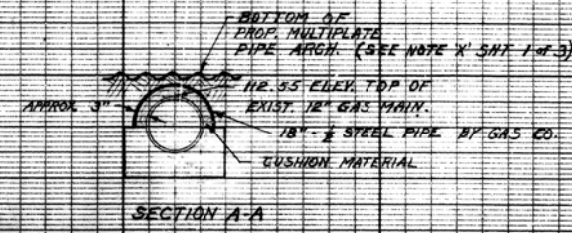 BOTTOM OF
PROP. MULTIPLATE
PIPE ARCH. (SEE NOTE 'X' SHT 1 of 3)
112.55 ELEV. TOP OF
EXIST. 12" GAS MAIN.
APPROX 3"
18" - ½ STEEL PIPE BY GAS CO.
CUSHION MATERIAL
SECTION A-A